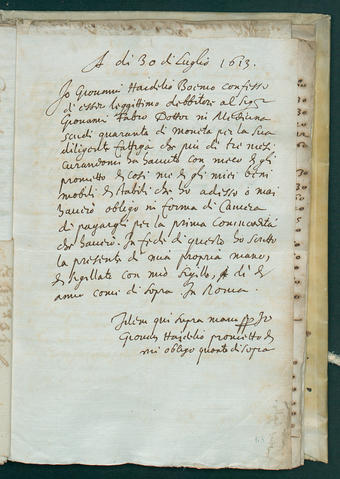 A di 30 di Luglio 1613.
Io Giovanni Haidelio Boemo confesso
di esser leggittimo debbitore al Sigr
Giovanni Fabro Dottor in Medicina
scudi quaranta di moneta per la sua
diligente fattiga che più di tre mesi
curandomi ha havuta con meco et gli
prometto et così me et gli miei beni
mobili et stabili che ho adesso o mai
haverò obligo in forma di Camera
di pagargli per la prima comincidità
che haverò. In fede di questo ho scritto
la presente di mia propria mano,
et sigillata con mio Sigillo, A di et
anno come di sopra. In Roma.
Idem qui supra manu pp Io
Giovan Haidelio prometto et
mi obligo quanto di sopra